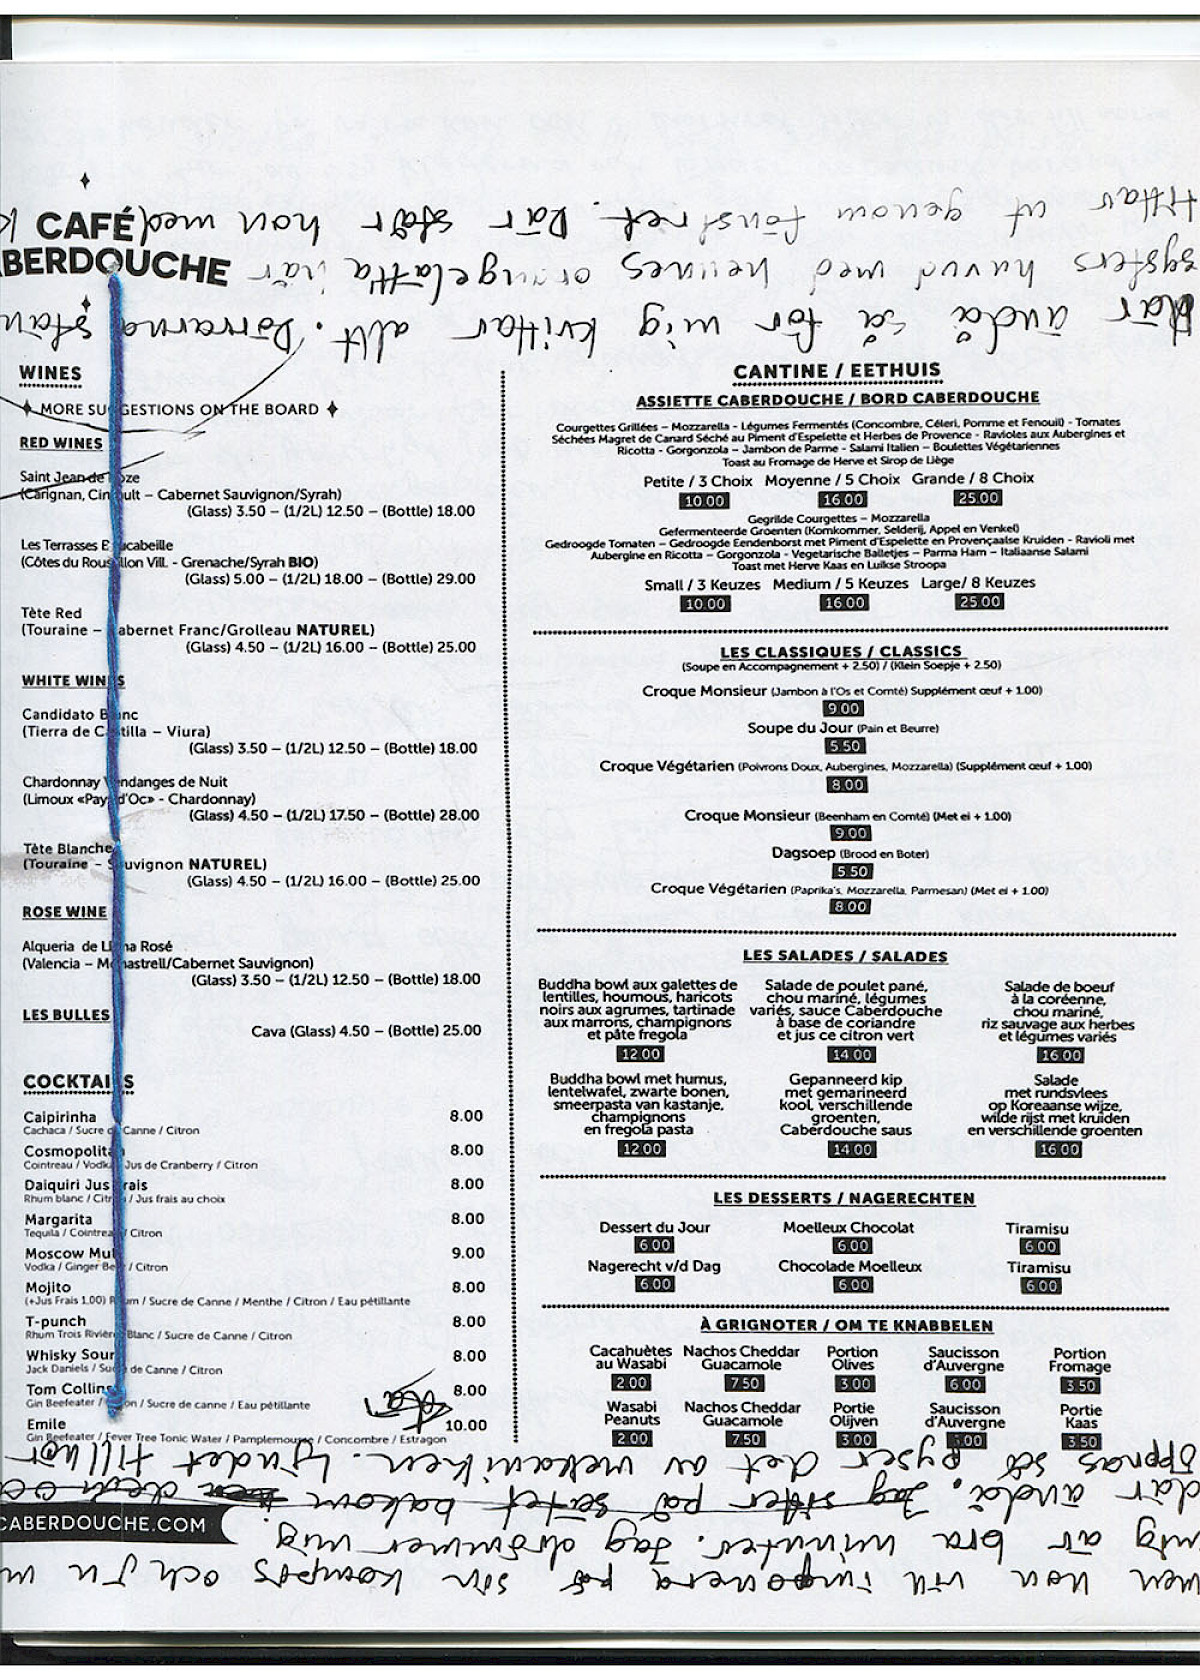 CAFÉ
ABERDOUCHE
WINES
MORE SUGGESTIONS ON THE BOARD
RED WINES
Saint Jean de oze
(Carignan, Cin ault – Cabernet Sauvignon/Syrah)
(Glass) 3.50 – (1/2L) 12.50 – (Bottle) 18.00
Les Terrasses E cabeille
(Côtes du Roussillon Vill. - Grenache/Syrah BIO)
(Glass) 5.00 – (1/2L) 18.00 – (Bottle) 29.00
Tète Red
(Touraine – abernet Franc/Grolleau NATUREL)
(Glass) 4.50 – (1/2L) 16.00 – (Bottle) 25.00
WHITE WINES
Candidato B nc
(Tierra de C tilla – Viura)
(Glass) 3.50 – (1/2L) 12.50 – (Bottle) 18.00
Chardonnay V ndanges de Nuit
(Limoux «Pays d'Oc» - Chardonnay)
(Glass) 4.50 – (1/2L) 17.50 – (Bottle) 28.00
Tète Blanche
(Touraine – S uvignon NATUREL)
(Glass) 4.50 – (1/2L) 16.00 – (Bottle) 25.00
ROSE WINE
Alqueria de L na Rosé
(Valencia – M nastrell/Cabernet Sauvignon)
(Glass) 3.50 – (1/2L) 12.50 – (Bottle) 18.00
LES BULLES
Cava (Glass) 4.50 – (Bottle) 25.00
COCKTAILS
Caipirinha 8.00
Cachaca / Sucre de Canne / Citron
Cosmopolitan 8.00
Cointreau / Vodka Jus de Cranberry / Citron
Daiquiri Jus Frais 8.00
Rhum blanc / Citron / Jus frais au choix
Margarita 8.00
Tequila / Cointreau / Citron
Moscow Mule 9.00
Vodka / Ginger Beer / Citron
Mojito 8.00
(+Jus Frais 1.00) Rhum / Sucre de Canne / Menthe / Citron / Eau pétillante
T-punch 8.00
Rhum Trois Rivières Blanc / Sucre de Canne / Citron
Whisky Sour 8.00
Jack Daniels / Sucre de Canne / Citron
Tom Collins 8.00
Gin Beefeater / Citron / Sucre de canne / Eau pétillante
Emile 10.00
Gin Beefeater / Fever Tree Tonic Water / Pamplemousse / Concombre / Estragon
CABERDOUCHE.COM
CANTINE / EETHUIS
ASSIETTE CABERDOUCHE / BORD CABERDOUCHE
Courgettes Grillées – Mozzarella - Légumes Fermentés (Concombre, Céleri, Pomme et Fenouil) - Tomates
Séchées Magret de Canard Séché au Piment d'Espelette et Herbes de Provence - Ravioles aux Aubergines et
Ricotta - Gorgonzola – Jambon de Parme - Salami Italien – Boulettes Végétariennes
Toast au Fromage de Herve et Sirop de Liège
Petite / 3 Choix Moyenne / 5 Choix Grande / 8 Choix
10.00 16.00 25.00
Gegrilde Courgettes – Mozzarella
Gefermenteerde Groenten (Komkommer, Selderij, Appel en Venkel)
Gedroogde Tomaten – Gedroogde Eendenborst met Piment d'Espelette en Provençaalse Kruiden - Ravioli met
Aubergine en Ricotta – Gorgonzola - Vegetarische Balletjes – Parma Ham – Italiaanse Salami
Toast met Herve Kaas en Luikse Stroopa
Small / 3 Keuzes Medium / 5 Keuzes Large/ 8 Keuzes
10.00 16.00 25.00
LES CLASSIQUES / CLASSICS
(Soupe en Accompagnement + 2.50) / (Klein Soepje + 2.50)
Croque Monsieur (Jambon à l'Os et Comté) Supplément œuf + 1.00)
9.00
Soupe du Jour (Pain et Beurre)
5.50
Croque Végétarien (Poivrons Doux, Aubergines, Mozzarella) (Supplément œuf + 1.00)
8.00
Croque Monsieur (Beenham en Comté) (Met ei + 1.00)
9.00
Dagsoep (Brood en Boter)
5.50
Croque Végétarien (Paprika's, Mozzarella, Parmesan) (Met ei + 1.00)
8.00
LES SALADES / SALADES
Buddha bowl aux galettes de
lentilles, houmous, haricots
noirs aux agrumes, tartinade
aux marrons, champignons
et pâte fregola
12.00
Salade de poulet pané,
chou mariné, légumes
variés, sauce Caberdouche
à base de coriandre
et jus ce citron vert
14.00
Salade de boeuf
à la coréenne,
chou mariné,
riz sauvage aux herbes
et légumes variés
16.00
Buddha bowl met humus,
lentelwafel, zwarte bonen,
smeerpasta van kastanje,
champignons
en fregola pasta
12.00
Gepanneerd kip
met gemarineerd
kool, verschillende
groenten,
Caberdouche saus
14.00
Salade
met rundsvlees
op Koreaanse wijze,
wilde rijst met kruiden
en verschillende groenten
16.00
LES DESSERTS / NAGERECHTEN
Dessert du Jour Moelleux Chocolat Tiramisu
6.00 6.00 6.00
Nagerecht v/d Dag Chocolade Moelleux Tiramisu
6.00 6.00 6.00
À GRIGNOTER / OM TE KNABBELEN
Cacahuètes au Wasabi
2.00
Nachos Cheddar Guacamole
7.50
Portion Olives
3.00
Saucisson d'Auvergne
6.00
Portion Fromage
3.50
Wasabi Peanuts
2.00
Nachos Cheddar Guacamole
7.50
Portie Olijven
3.00
Saucisson d'Auvergne
.00
Portie Kaas
3.50
men hon vill imponera på sin kompis och
mig är bra minuter. Jag drömmer mig
där ändå. Jag sitter på sätet bakom dem
öppnas så pyser det av mekaniken. Ljudet tillhör
där ändå så för mig kvittar allt. Dörrarna
systers huvud med hennes orangelätta hår
tittar ut genom fönstret. Där står hon med